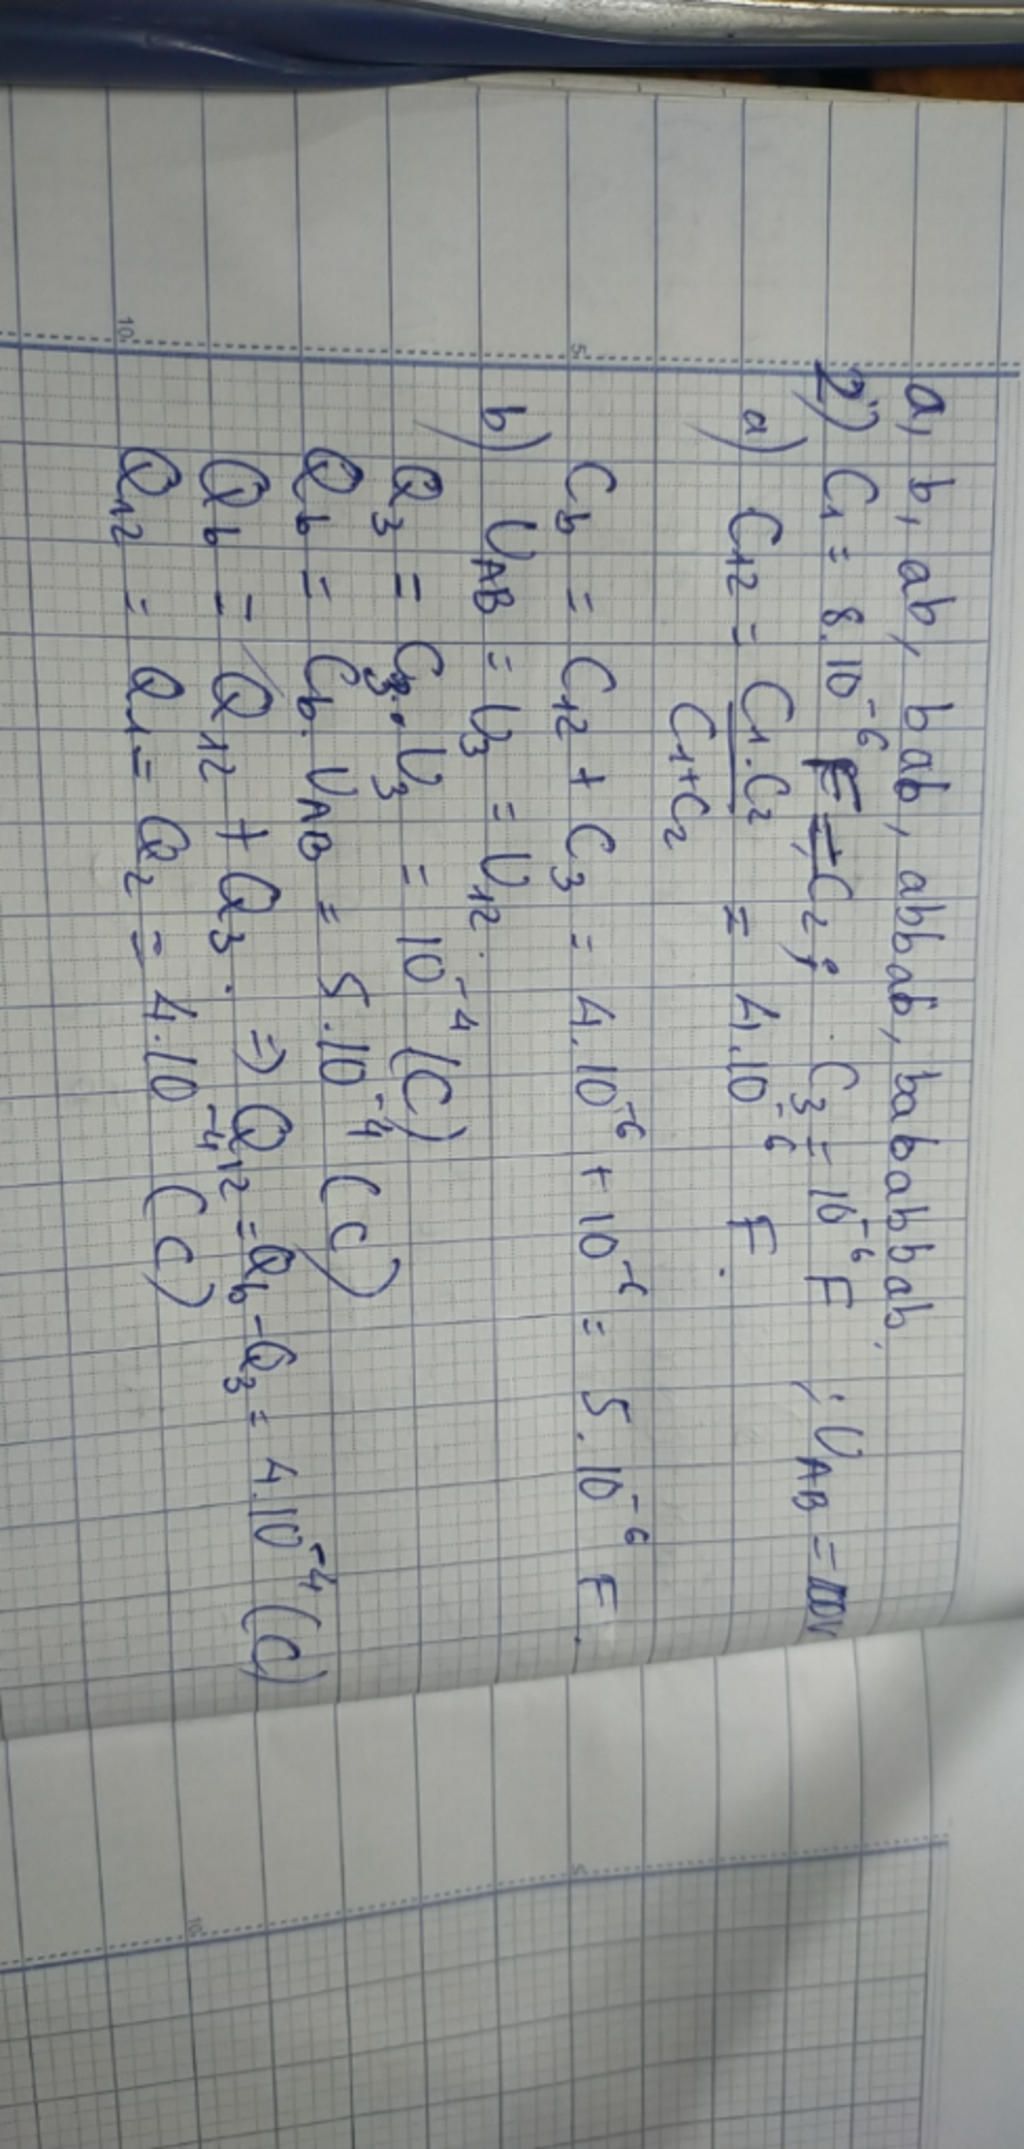 a, b, ab, bab, abbab, bababbab.
2) C1 = 8.10^-6 F = C2 ; C3 = 10^-6 F ; UAB = 100V
a) C12 = C1.C2 / C1+C2 = 4.10^-6 F.
Cb = C12 + C3 = 4.10^-6 + 10^-6 = 5.10^-6 F.
b) UAB = U3 = U12.
Q3 = C3.U3 = 10^-4 (C)
Qb = Cb.UAB = 5.10^-4 (C)
Qb = Q12 + Q3. => Q12 = Qb - Q3 = 4.10^-4 (C)
Q12 = Q1 = Q2 = 4.10^-4 (C)
5
10
5
10